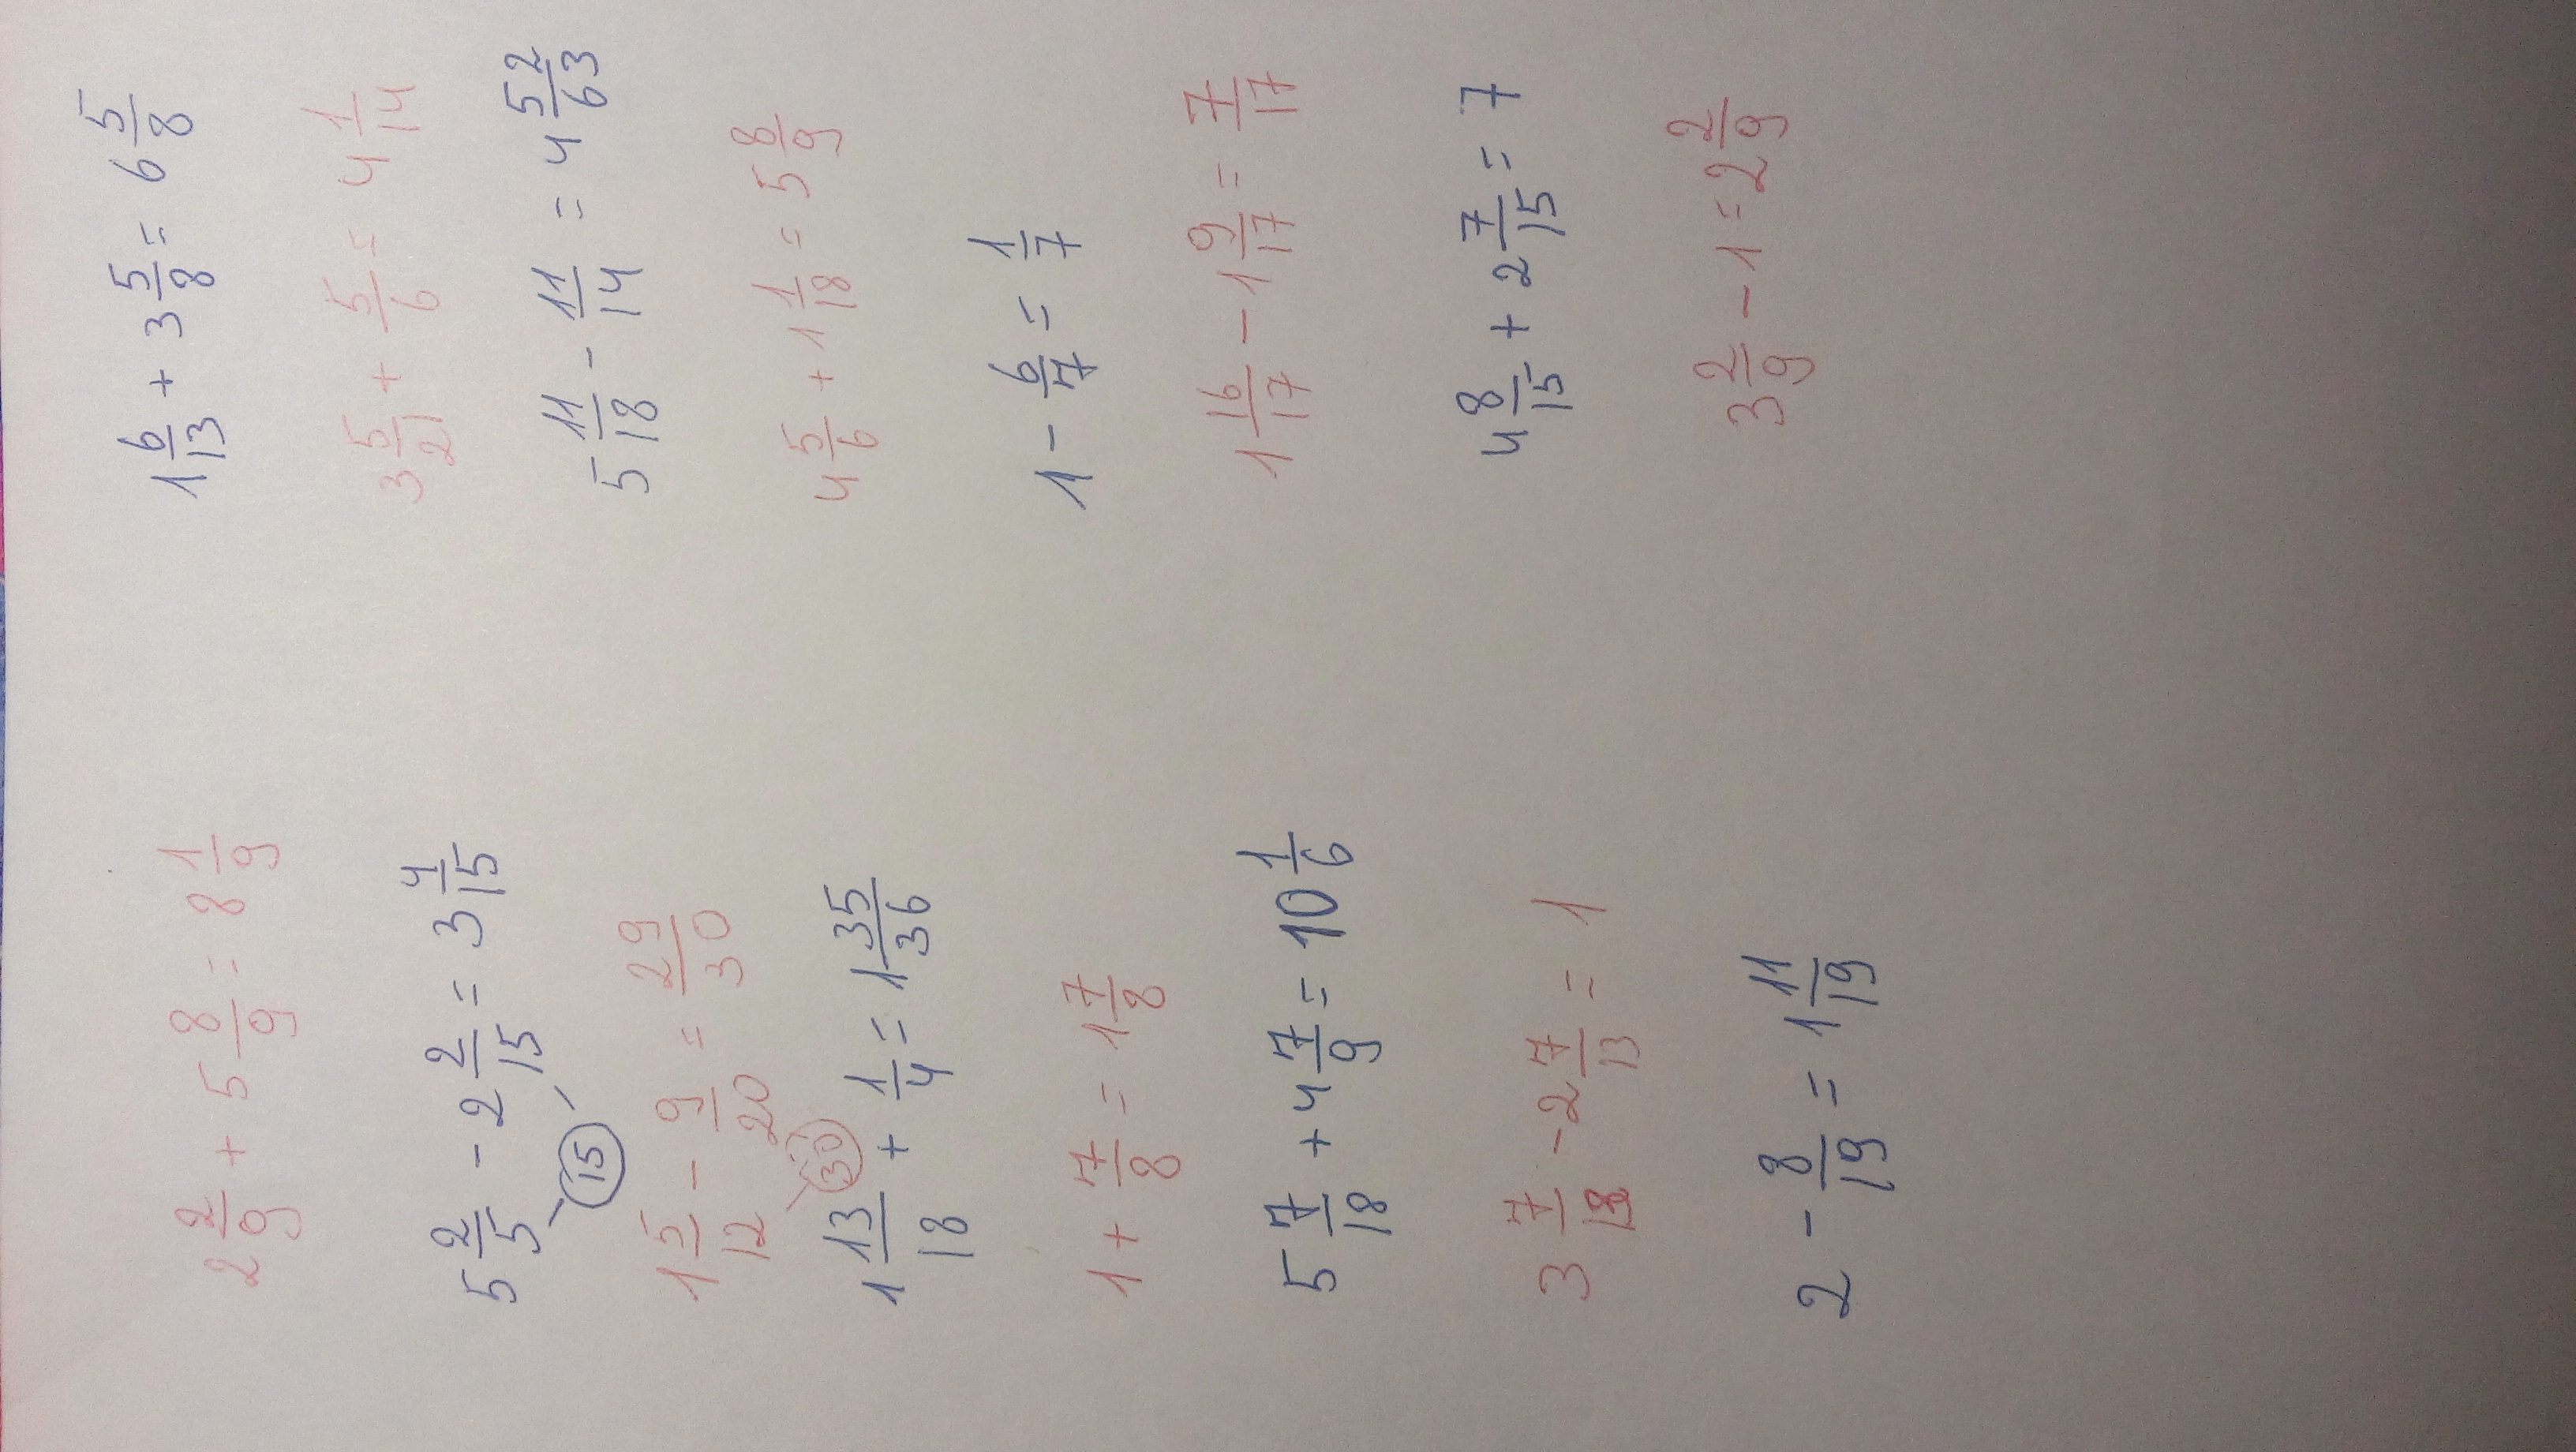 2 2/9 + 5 8/9 = 8 1/9
5 2/5 - 2 2/15 = 3 4/15
15
1 5/12 - 9/20 = 29/30
30
1 13/18 + 1/4 = 1 35/36
1 + 7/8 = 1 7/8
5 7/18 + 4 7/9 = 10 1/6
3 7/13 - 2 7/13 = 1
2 - 8/19 = 1 11/19
1 6/13 + 3 5/8 = 6 5/8
3 5/21 + 5/6 = 4 1/14
5 11/18 - 11/14 = 4 52/63
4 5/6 + 1 1/18 = 5 8/9
1 - 6/7 = 1/7
1 16/17 - 1 9/17 = 7/17
4 8/15 + 2 7/15 = 7
3 2/9 - 1 = 2 2/9